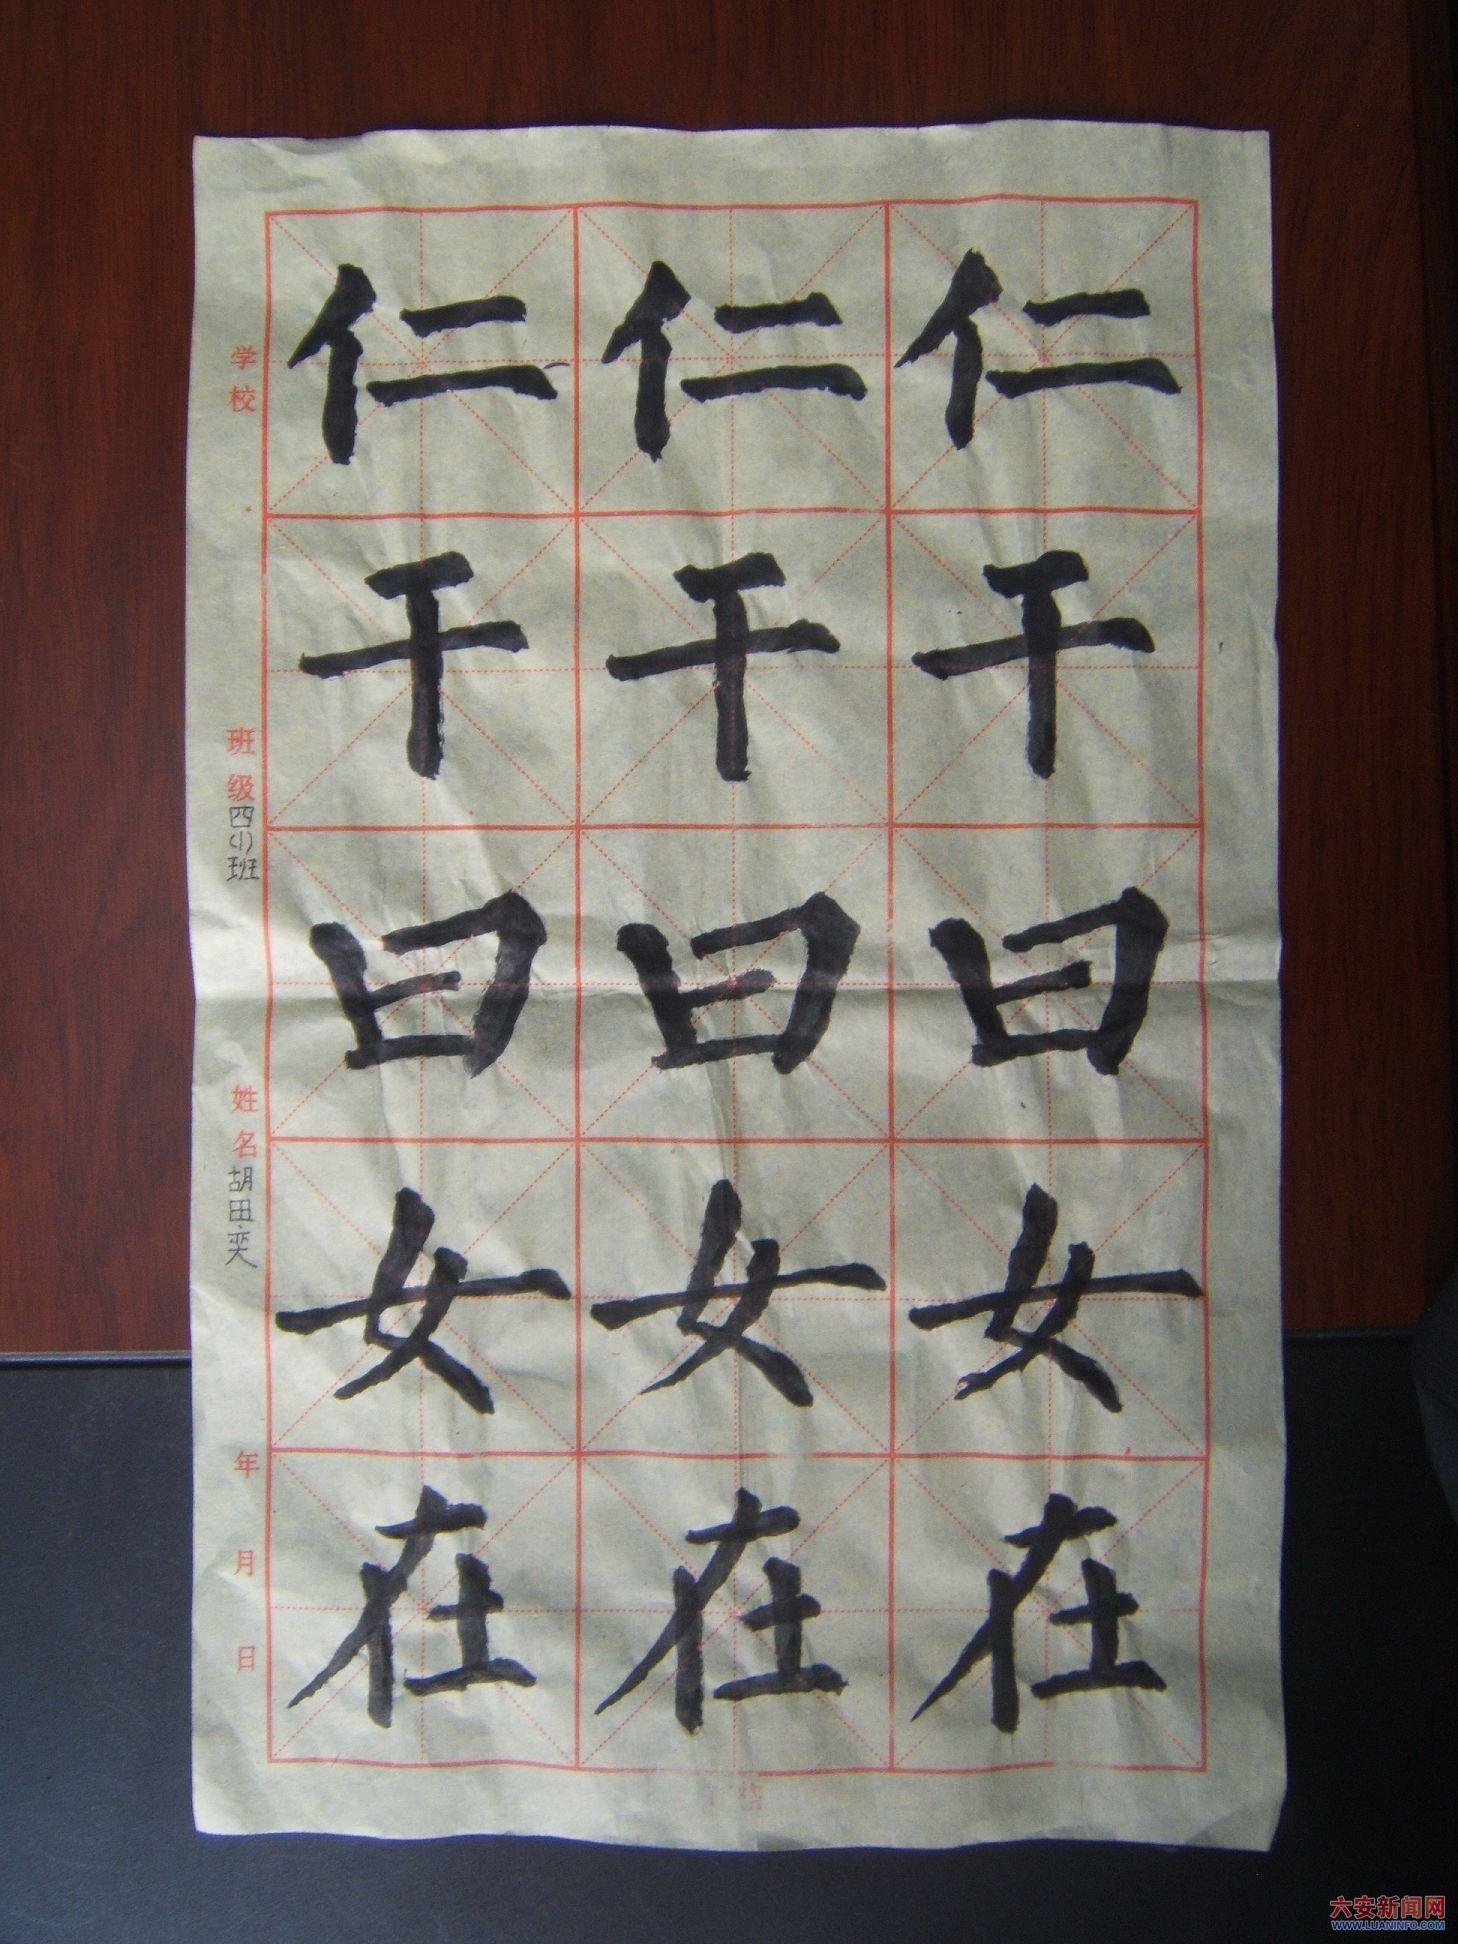 仁仁仁
干干干
曰曰曰
女女女
在在在
学校
班级四(1)班
姓名胡田奕
年月日
六安新闻网
WWW.LUANINFO.COM